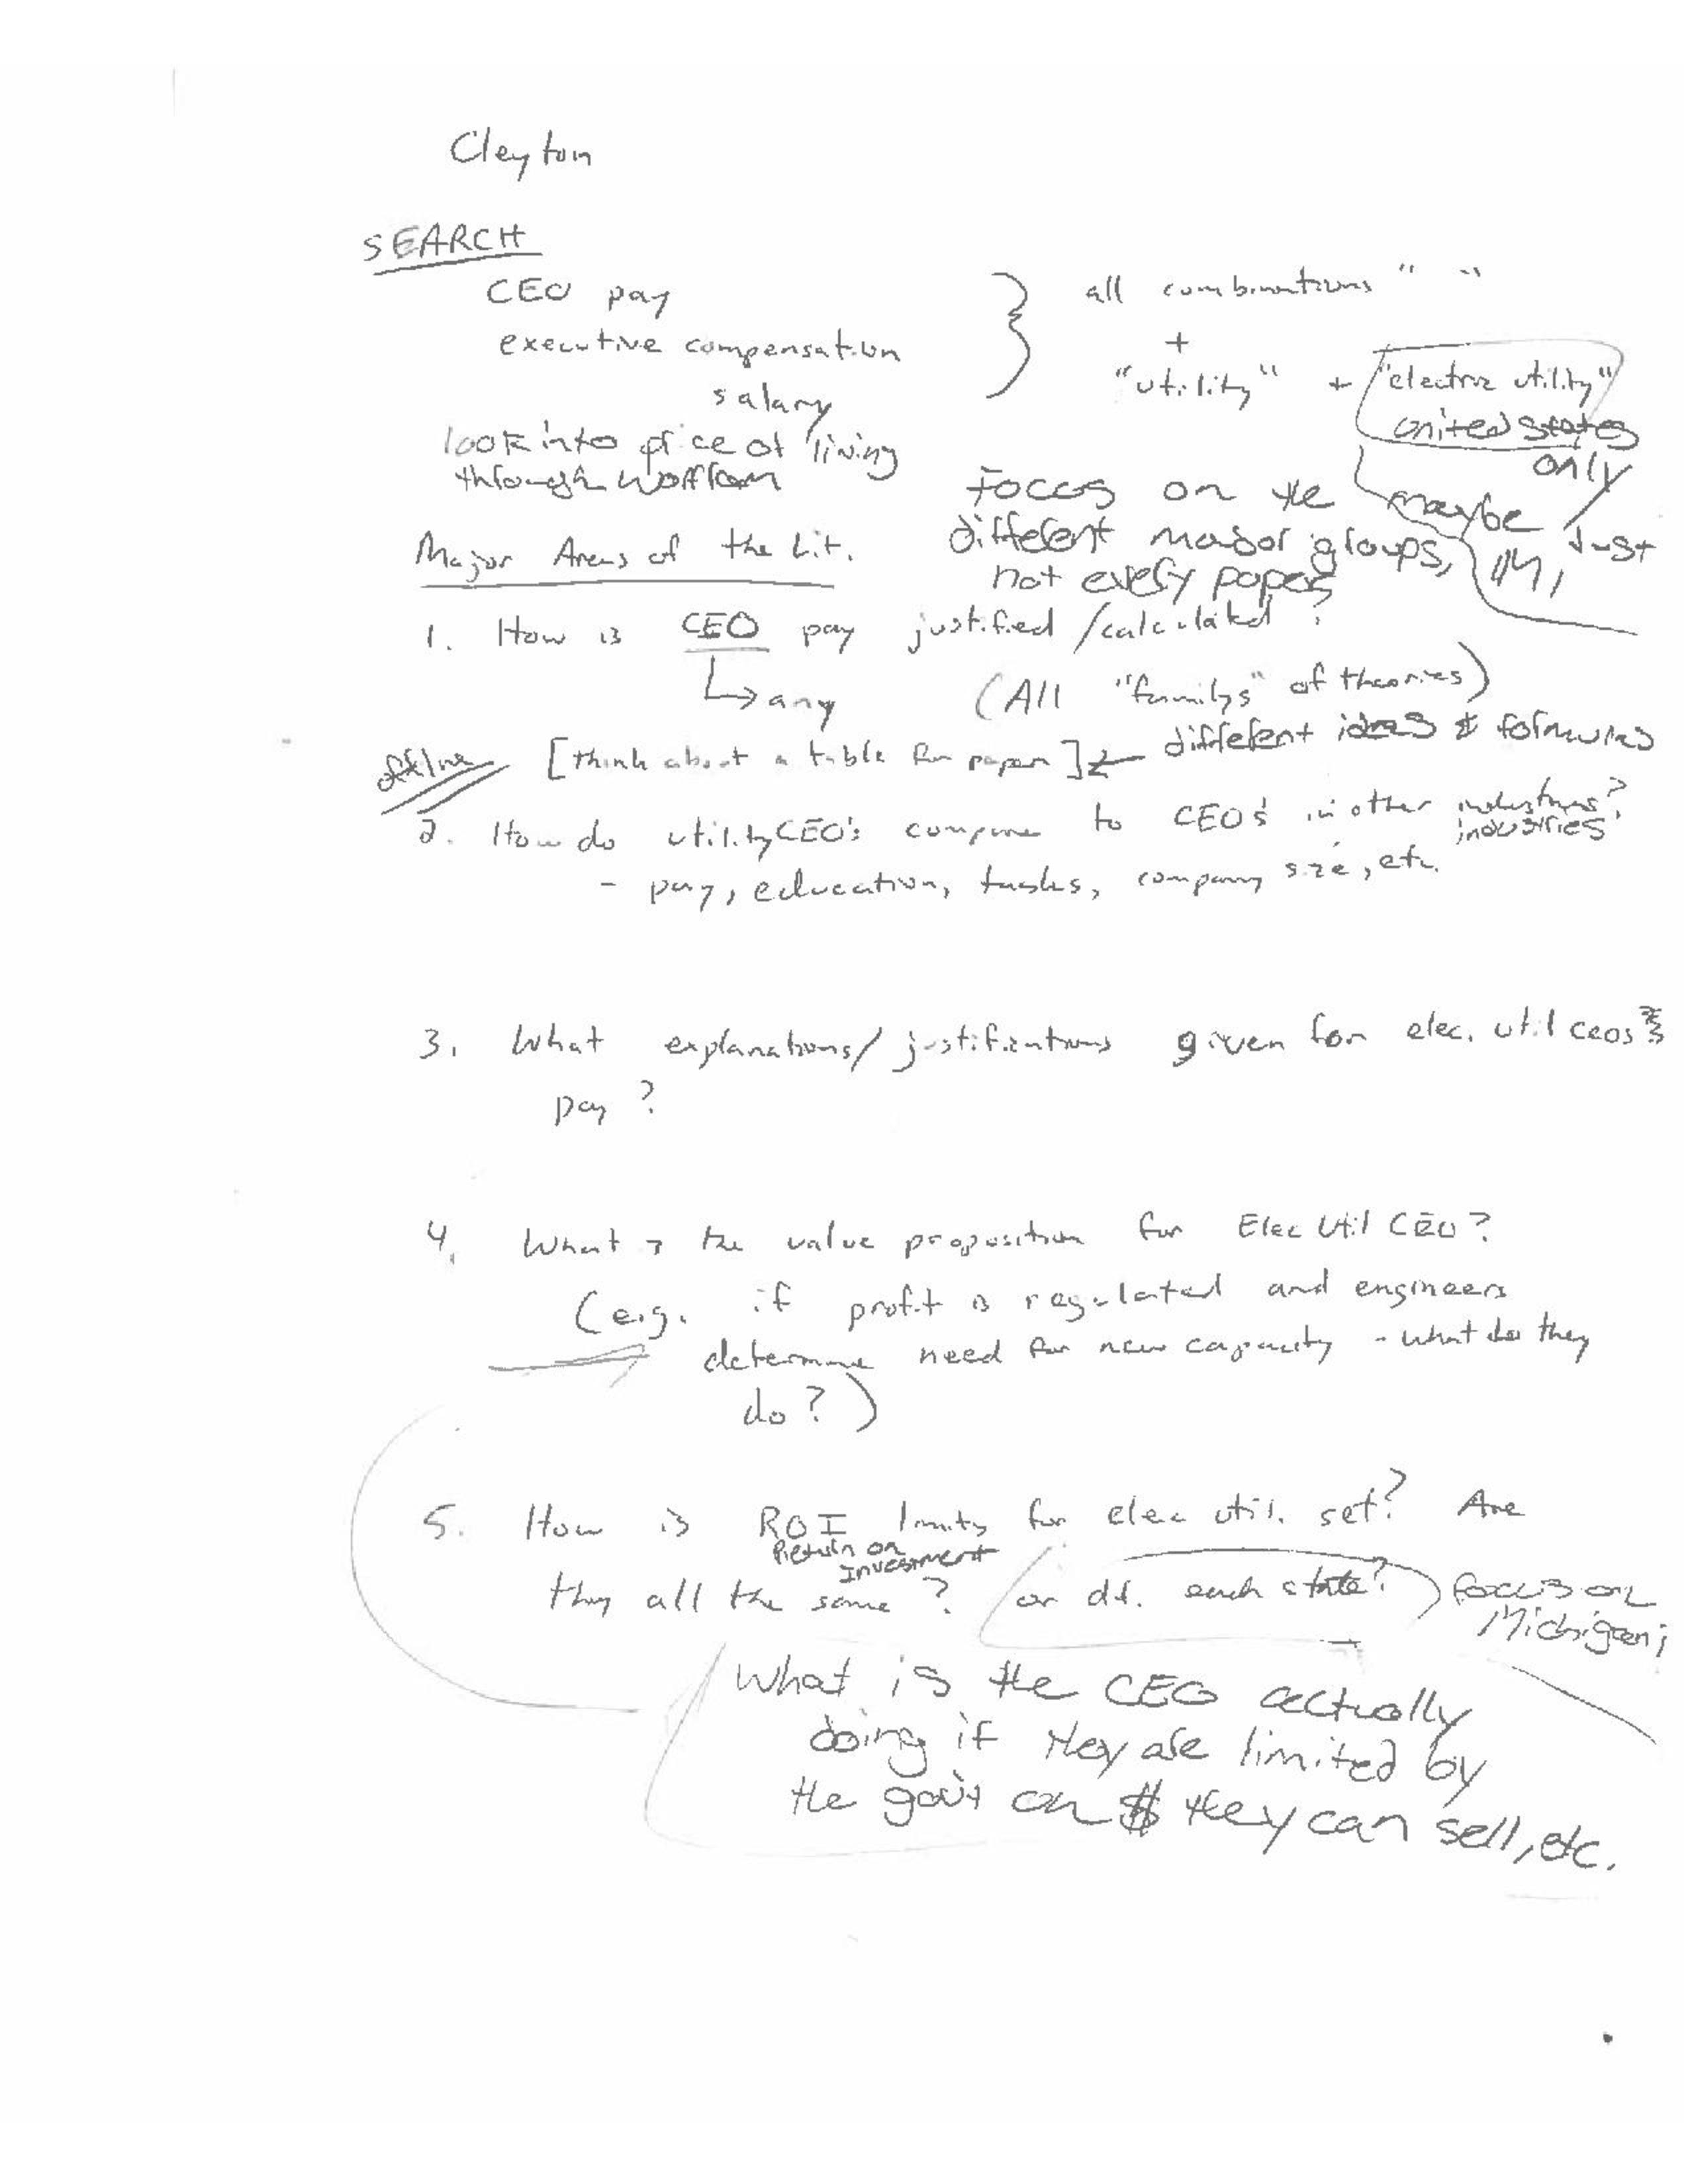 Cleyton
SEARCH
CEO pay
executive compensation
salary
all combinations " "
+
"utility" + "electric utility"
united states
only
look into price of living
through wolfram
Focus on the
different major groups,
not every paper
maybe just
MI
Major Areas of the Lit.
1. How is CEO pay justified/calculated?
any
(All "familys" of theories)
offline [think about a table for paper] different ideas & formulas
2. How do utility CEO's compare to CEO's in other industries?
industries
- pay, education, tasks, company size, etc.
3. What explanations/justifications given for elec. util ceos
pay?
4. What is the value proposition for Elec Util CEO?
(e.g. if profit is regulated and engineers
determine need for new capacity - what do they
do?)
5. How is ROI limits for elec util. set? Are
Return on
Investment
they all the same? or dif. each state? focus on
Michigan;
What is the CEO actually
doing if they are limited by
the gov't on $ they can sell, etc.